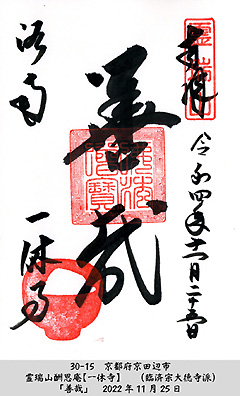 奉拝
令和四年十一月二十五日
善哉
洛南
一休寺
30-15 京都府京田辺市
霊瑞山酬恩庵【一休寺】 (臨済宗大徳寺派)
「善哉」 2022年11月25日